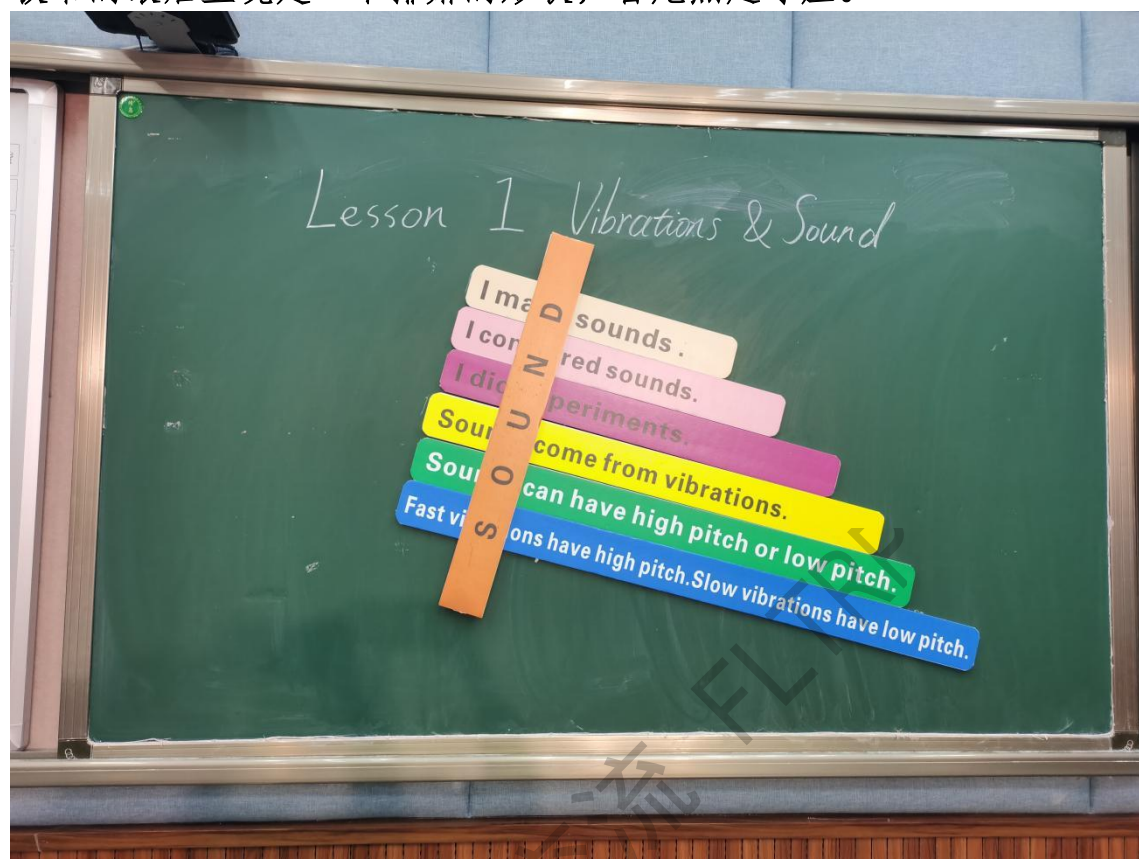 Lesson 1 Vibrations & Sound
I ma sounds .
I co red sounds.
I di periments.
Sou come from vibrations.
Sou can have high pitch or low pitch.
Fast vi ons have high pitch.Slow vibrations have low pitch.
S O U N D
流 FLTRP